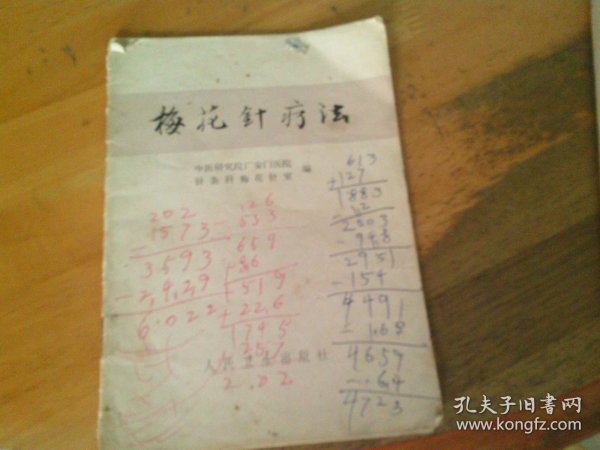 梅花針疗法
中医研究院广安门医院
针灸科梅花针室 编
613
127
1883
12
2803
- 948
2951
- 154
4491
- 168
4659
- 64
4723
202
1573
3593
- 2,429
6.022
126
533
659
86
519
226
1745
257
2.02
人民卫生出版社
孔夫子旧书网
www.kongfz.com